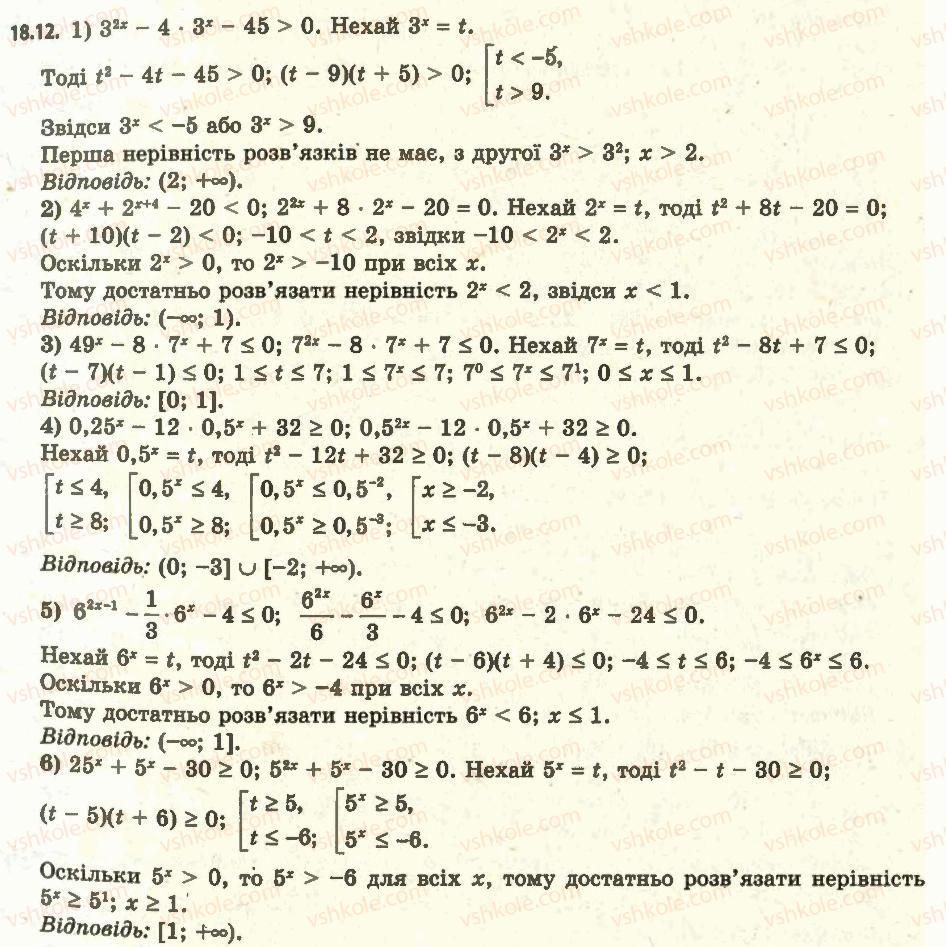 18.12. 1) 3²ˣ − 4 · 3ˣ − 45 > 0. Нехай 3ˣ = t.
Тоді t² − 4t − 45 > 0; (t − 9)(t + 5) > 0; [t < −5,
t > 9.
Звідси 3ˣ < −5 або 3ˣ > 9.
Перша нерівність розв’язків не має, з другої 3ˣ > 3²; x > 2.
Відповідь: (2; +∞).
2) 4ˣ + 2ˣ⁺⁴ − 20 < 0; 2²ˣ + 8 · 2ˣ − 20 = 0. Нехай 2ˣ = t, тоді t² + 8t − 20 = 0;
(t + 10)(t − 2) < 0; −10 < t < 2, звідки −10 < 2ˣ < 2.
Оскільки 2ˣ > 0, то 2ˣ > −10 при всіх x.
Тому достатньо розв’язати нерівність 2ˣ < 2, звідси x < 1.
Відповідь: (−∞; 1).
3) 49ˣ − 8 · 7ˣ + 7 ≤ 0; 7²ˣ − 8 · 7ˣ + 7 ≤ 0. Нехай 7ˣ = t, тоді t² − 8t + 7 ≤ 0;
(t − 7)(t − 1) ≤ 0; 1 ≤ t ≤ 7; 1 ≤ 7ˣ ≤ 7; 7⁰ ≤ 7ˣ ≤ 7¹; 0 ≤ x ≤ 1.
Відповідь: [0; 1].
4) 0,25ˣ − 12 · 0,5ˣ + 32 ≥ 0; 0,5²ˣ − 12 · 0,5ˣ + 32 ≥ 0.
Нехай 0,5ˣ = t, тоді t² − 12t + 32 ≥ 0; (t − 8)(t − 4) ≥ 0;
[t ≤ 4, [0,5ˣ ≤ 4, [0,5ˣ ≤ 0,5⁻², [x ≥ −2,
t ≥ 8; 0,5ˣ ≥ 8; 0,5ˣ ≥ 0,5⁻³; x ≤ −3.
Відповідь: (0; −3] ∪ [−2; +∞).
5) 6²ˣ⁻¹ − 1/3 · 6ˣ − 4 ≤ 0; 6²ˣ/6 − 6ˣ/3 − 4 ≤ 0; 6²ˣ − 2 · 6ˣ − 24 ≤ 0.
Нехай 6ˣ = t, тоді t² − 2t − 24 ≤ 0; (t − 6)(t + 4) ≤ 0; −4 ≤ t ≤ 6; −4 ≤ 6ˣ ≤ 6.
Оскільки 6ˣ > 0, то 6ˣ > −4 при всіх x.
Тому достатньо розв’язати нерівність 6ˣ < 6; x ≤ 1.
Відповідь: (−∞; 1].
6) 25ˣ + 5ˣ − 30 ≥ 0; 5²ˣ + 5ˣ − 30 ≥ 0. Нехай 5ˣ = t, тоді t² − t − 30 ≥ 0;
(t − 5)(t + 6) ≥ 0; [t ≥ 5, [5ˣ ≥ 5,
t ≤ −6; 5ˣ ≤ −6.
Оскільки 5ˣ > 0, то 5ˣ > −6 для всіх x, тому достатньо розв’язати нерівність
5ˣ ≥ 5¹; x ≥ 1.
Відповідь: [1; +∞).